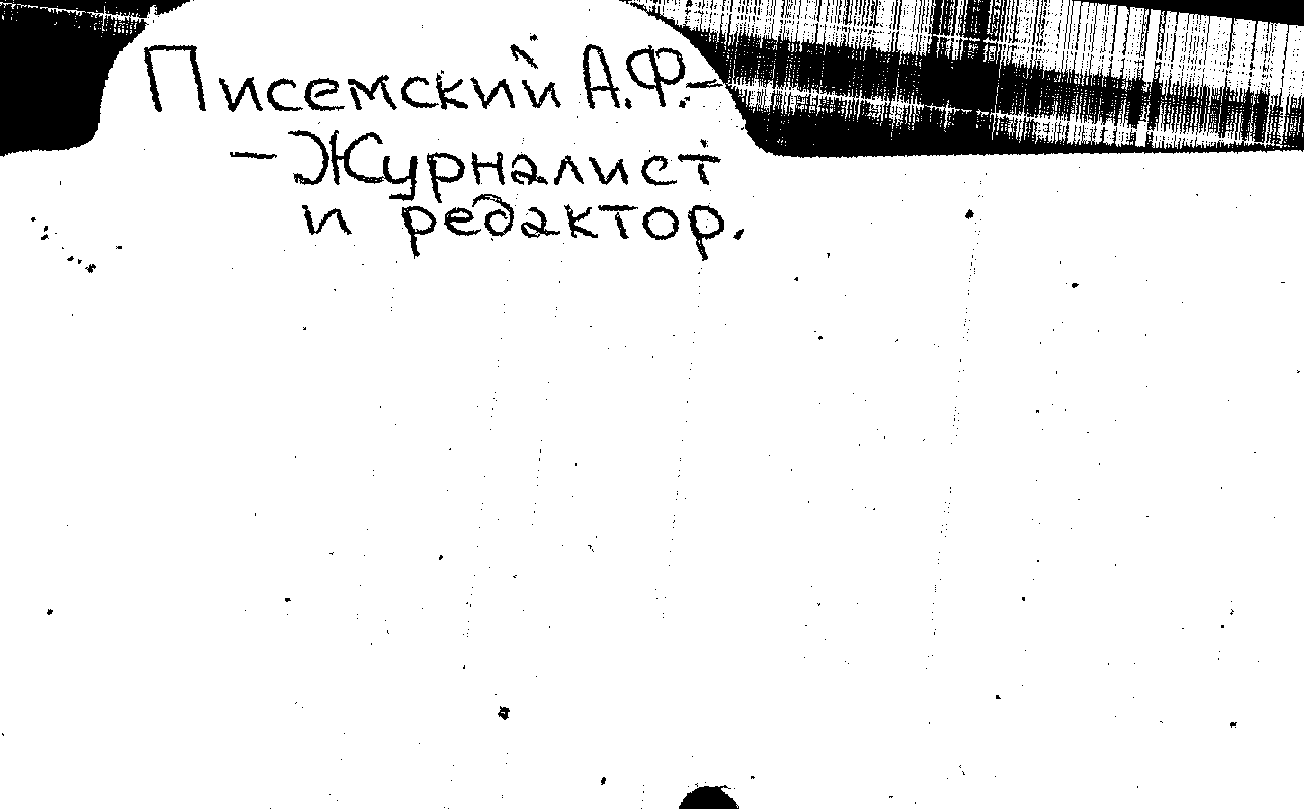 Писемский А.Ф.-
- Журналист
и редактор.